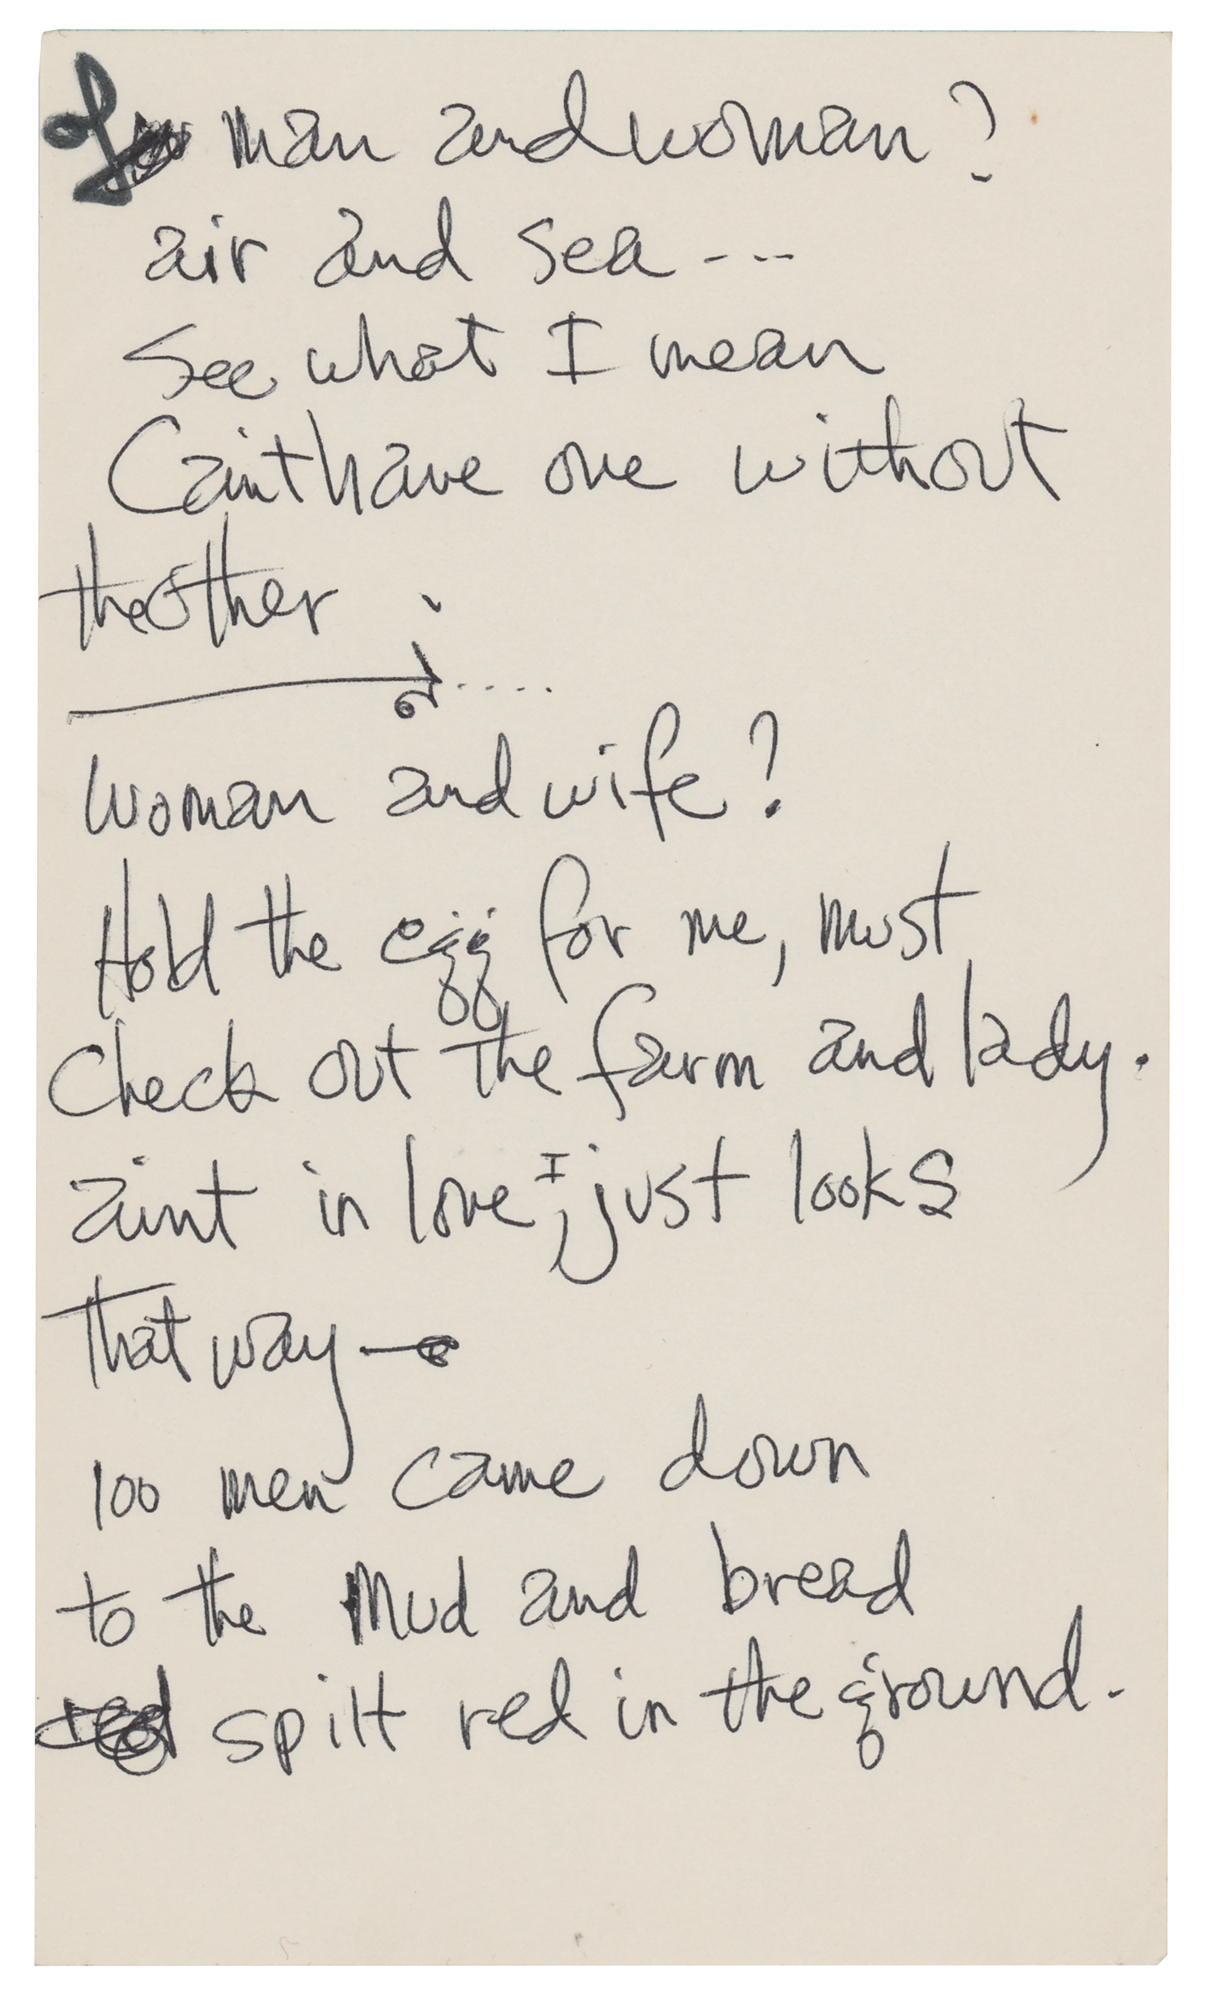 man and woman?
air and sea ---
See what I mean
Cain't have one without
the other
woman and wife?
Hold the egg for me, must
Check out the farm and lady.
aint in love I, just looks
that way —
100 men came down
to the Mud and bread
red spilt red in the ground.